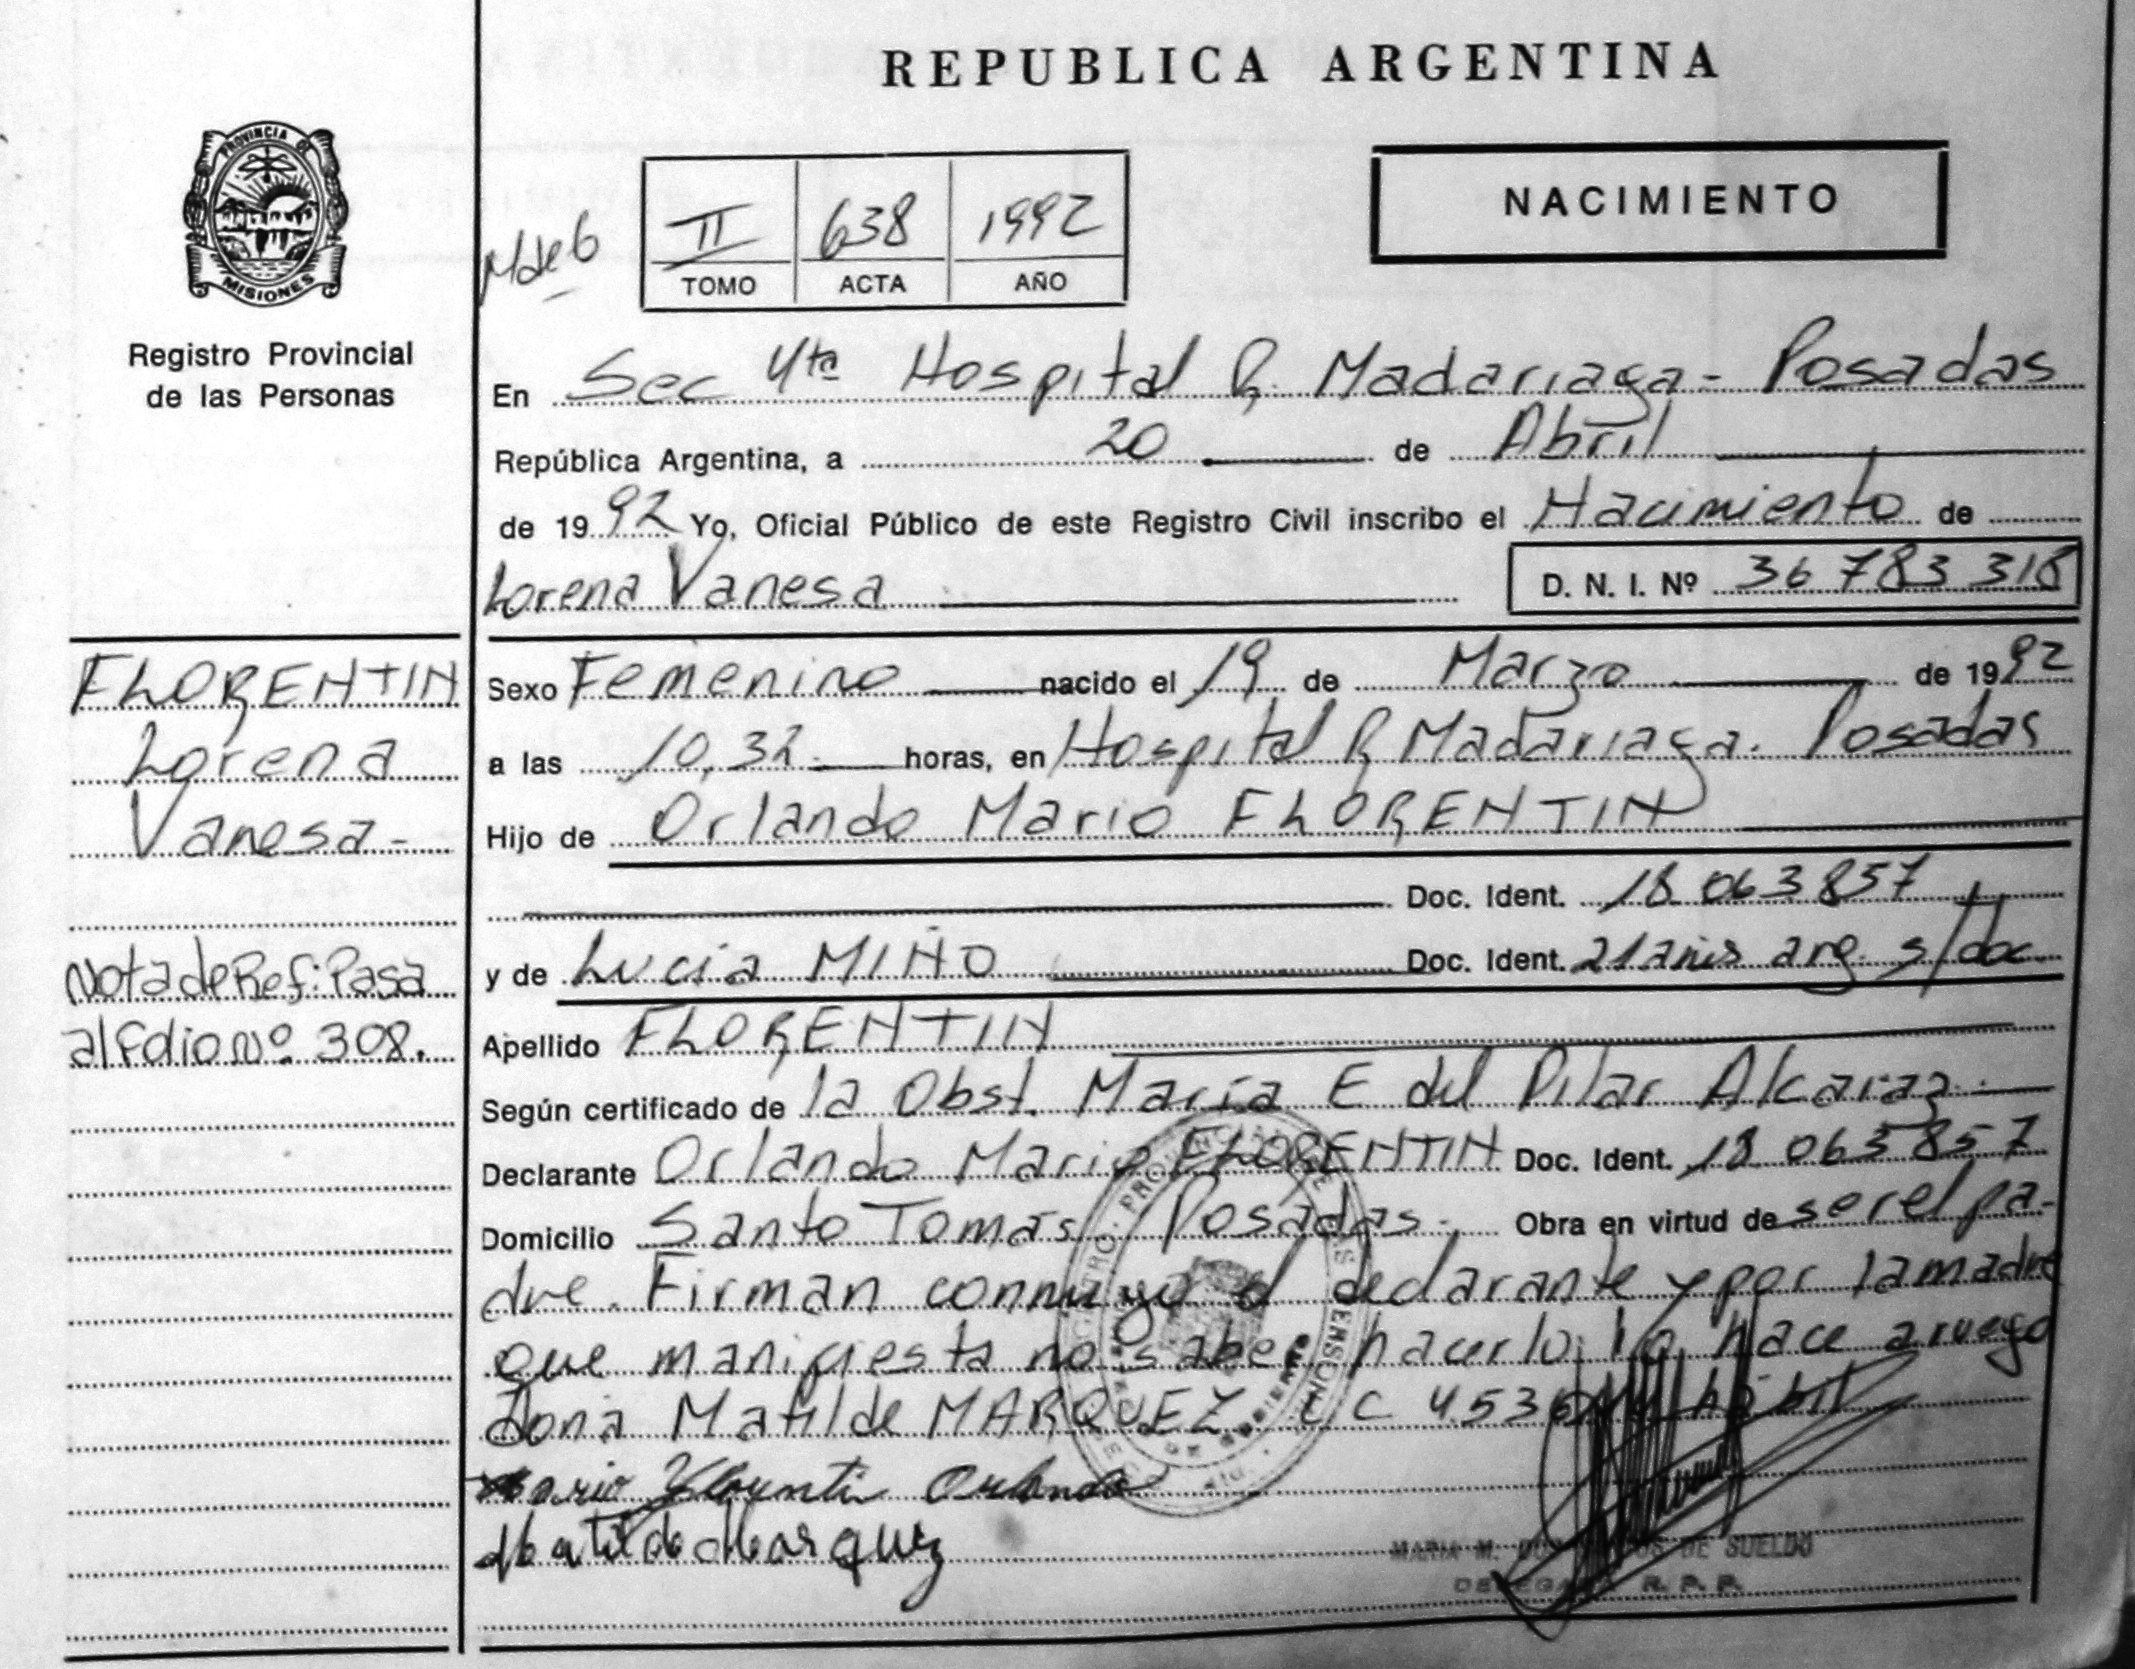 REPUBLICA ARGENTINA
PROVINCIA DE
MISIONES
Registro Provincial
de las Personas
NACIMIENTO
II 638 1992
TOMO ACTA AÑO
En Sec 4ta Hospital R. Madariaga - Posadas
República Argentina, a 20 de Abril
de 1992 Yo, Oficial Público de este Registro Civil inscribo el Nacimiento de
Lorena Vanesa D. N. I. Nº 36 783 318
FLORENTIN
Lorena
Vanesa -
Nota de Ref: Pasa
al Folio Nº 308.
Sexo Femenino nacido el 19 de Marzo de 1992
a las 10,32 horas, en Hospital R Madariaga. Posadas
Hijo de Orlando Mario FLORENTIN
Doc. Ident. 18 063 857
y de Lucia MIÑO Doc. Ident. 21 años arg. s/doc
Apellido FLORENTIN
Según certificado de la Obst. María E del Pilar Alcaraz
Declarante Orlando Mario FLORENTIN Doc. Ident. 18 063 857
Domicilio Santo Tomás Posadas. Obra en virtud de ser el pa-
dre. Firman conmigo el declarante y por la madre
que manifiesta no saber hacerlo lo hace a ruego
Doña Matilde MARQUEZ LC 4536 hábil
Orlando
Matilde Marquez
MARIA M. DE SUELDO
DELEGADA R. P. P.